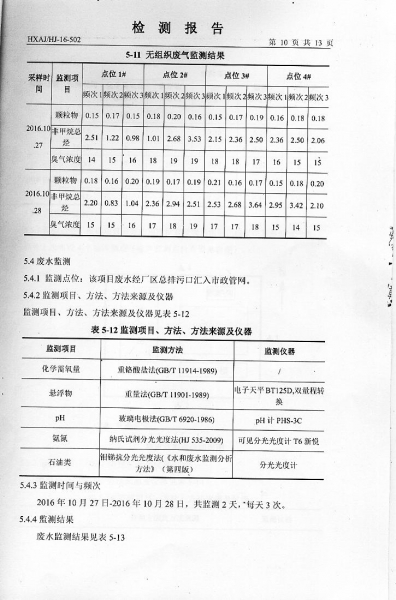 检 测 报 告
HXAJ/HJ-16-502 第 10 页 共 13 页
5-11 无组织废气监测结果
采样时间 监测项目 点位 1# 点位 2# 点位 3# 点位 4#
频次 1 频次 2 频次 3 频次 1 频次 2 频次 3 频次 1 频次 2 频次 3 频次 1 频次 2 频次 3
2016.10.27 颗粒物 0.15 0.17 0.15 0.18 0.20 0.16 0.15 0.17 0.19 0.16 0.18 0.18
非甲烷总烃 2.51 1.22 0.98 1.01 2.68 3.53 2.15 2.36 2.50 2.36 2.50 2.06
臭气浓度 14 15 16 18 19 19 18 18 17 16 15 15
2016.10.28 颗粒物 0.18 0.16 0.20 0.19 0.17 0.19 0.21 0.16 0.17 0.15 0.18 0.20
非甲烷总烃 2.20 0.83 1.04 2.36 2.94 2.51 2.53 2.68 3.64 2.95 3.42 2.10
臭气浓度 15 15 16 17 18 19 17 17 18 15 14 15
5.4 废水监测
5.4.1 监测点位：该项目废水经厂区总排污口汇入市政管网。
5.4.2 监测项目、方法、方法来源及仪器
监测项目、方法、方法来源及仪器见表 5-12
表 5-12 监测项目、方法、方法来源及仪器
监测项目 监测方法 监测仪器
化学需氧量 重铬酸盐法(GB/T 11914-1989) /
悬浮物 重量法(GB/T 11901-1989) 电子天平 BT125D,双量程转换
pH 玻璃电极法(GB/T 6920-1986) pH 计 PHS-3C
氨氮 纳氏试剂分光光度法(HJ 535-2009) 可见分光光度计 T6 新悦
石油类 钼锑抗分光光度法(《水和废水监测分析方法》（第四版） 分光光度计
5.4.3 监测时间与频次
2016 年 10 月 27 日-2016 年 10 月 28 日，共监测 2 天，每天 3 次。
5.4.4 监测结果
废水监测结果见表 5-13